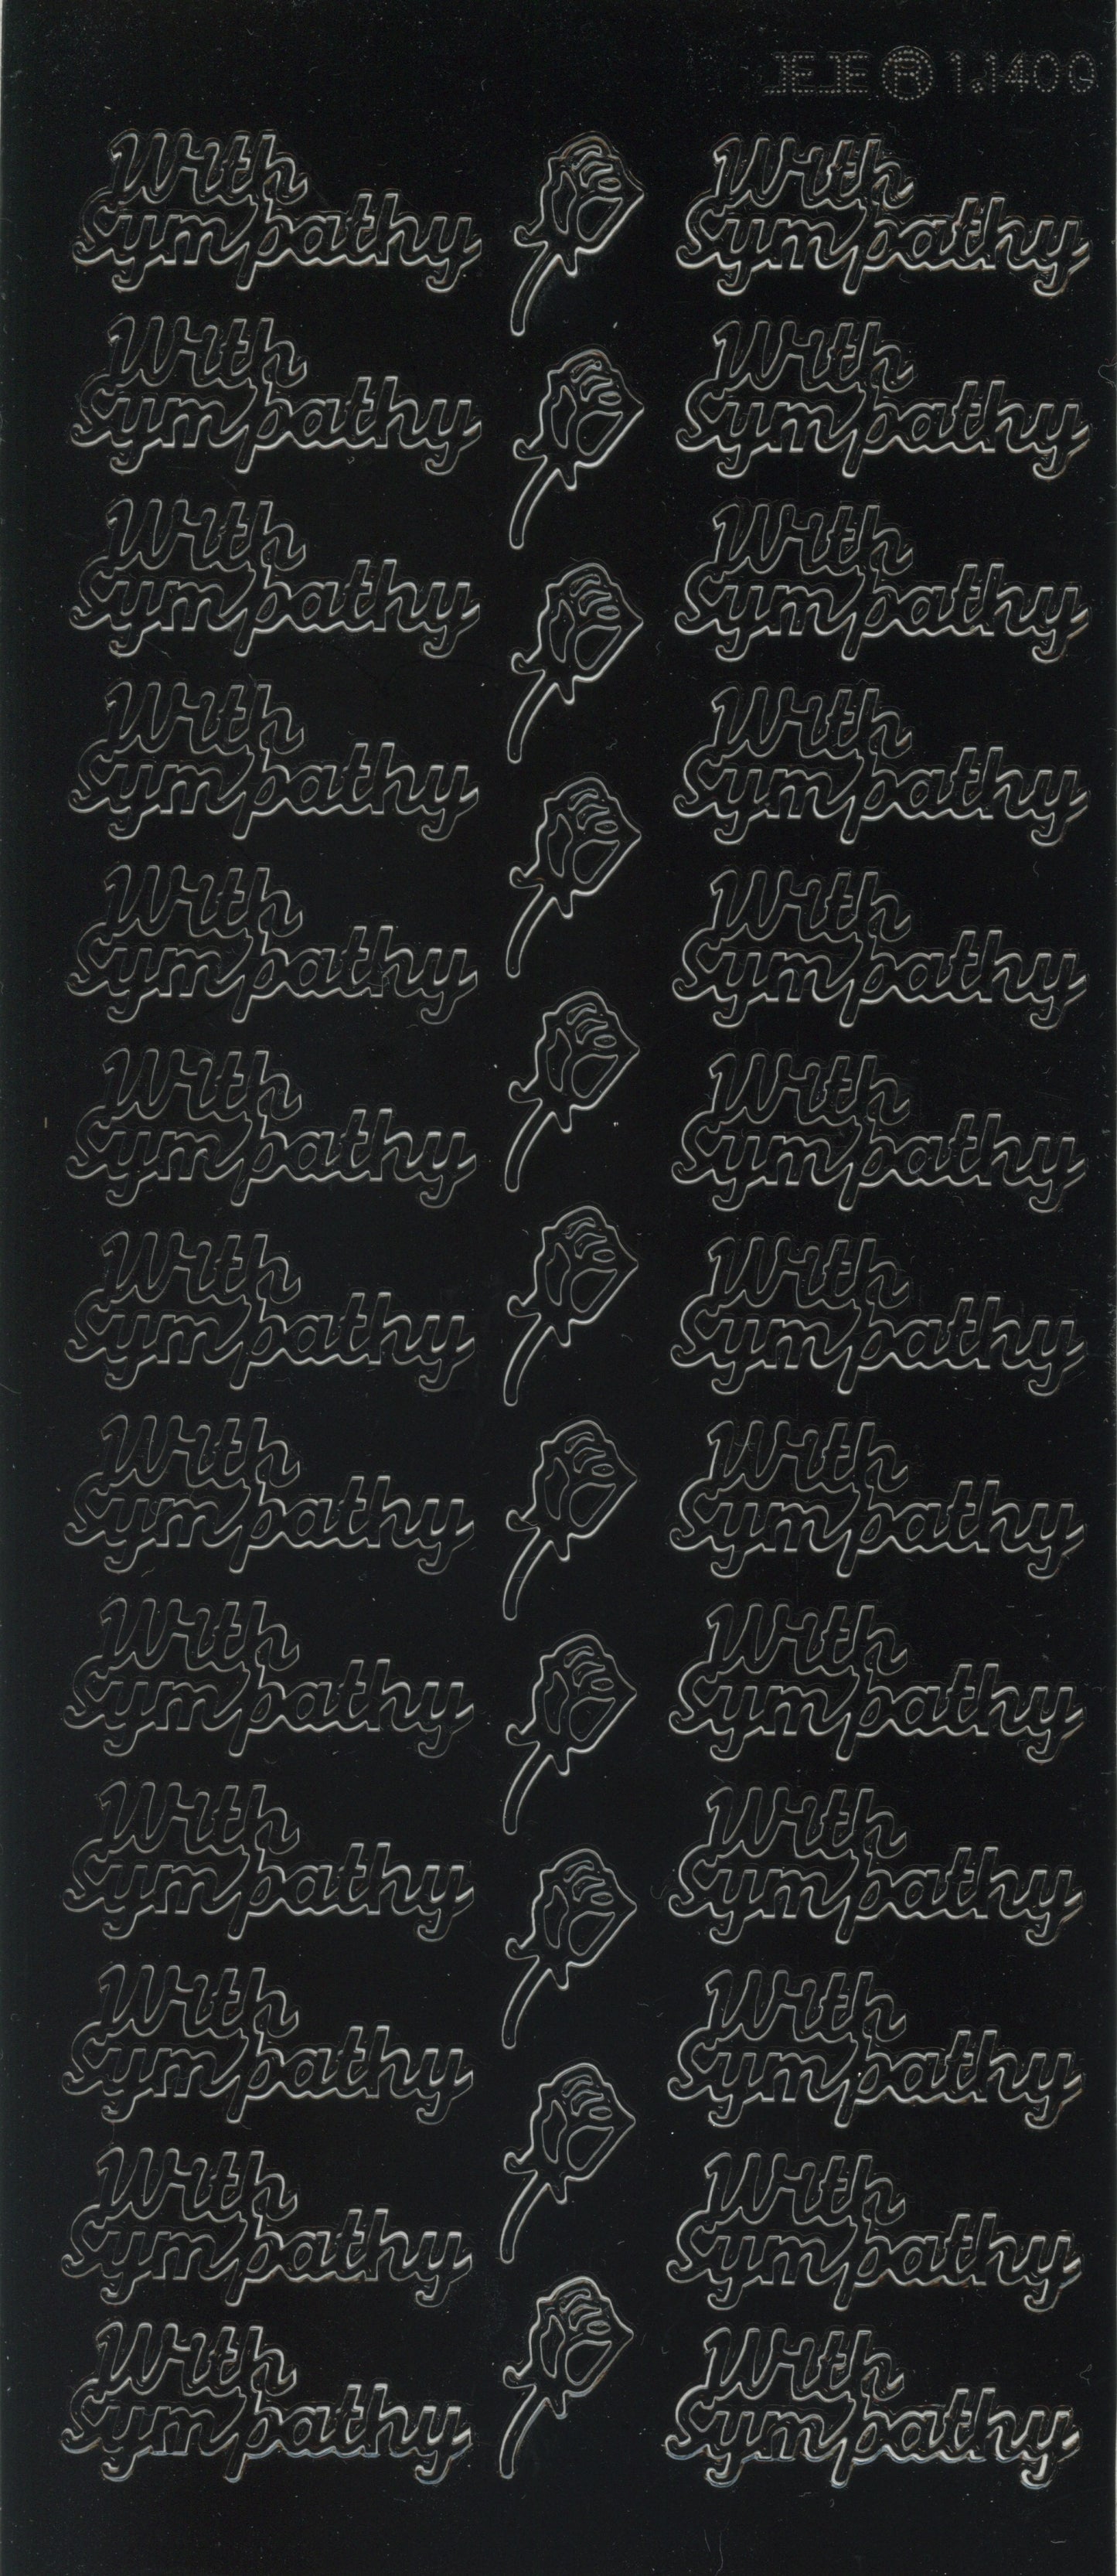 JEJE ® 1.140 G
With With
Sympathy Sympathy
With With
Sympathy Sympathy
With With
Sympathy Sympathy
With With
Sympathy Sympathy
With With
Sympathy Sympathy
With With
Sympathy Sympathy
With With
Sympathy Sympathy
With With
Sympathy Sympathy
With With
Sympathy Sympathy
With With
Sympathy Sympathy
With With
Sympathy Sympathy
With With
Sympathy Sympathy
With With
Sympathy Sympathy